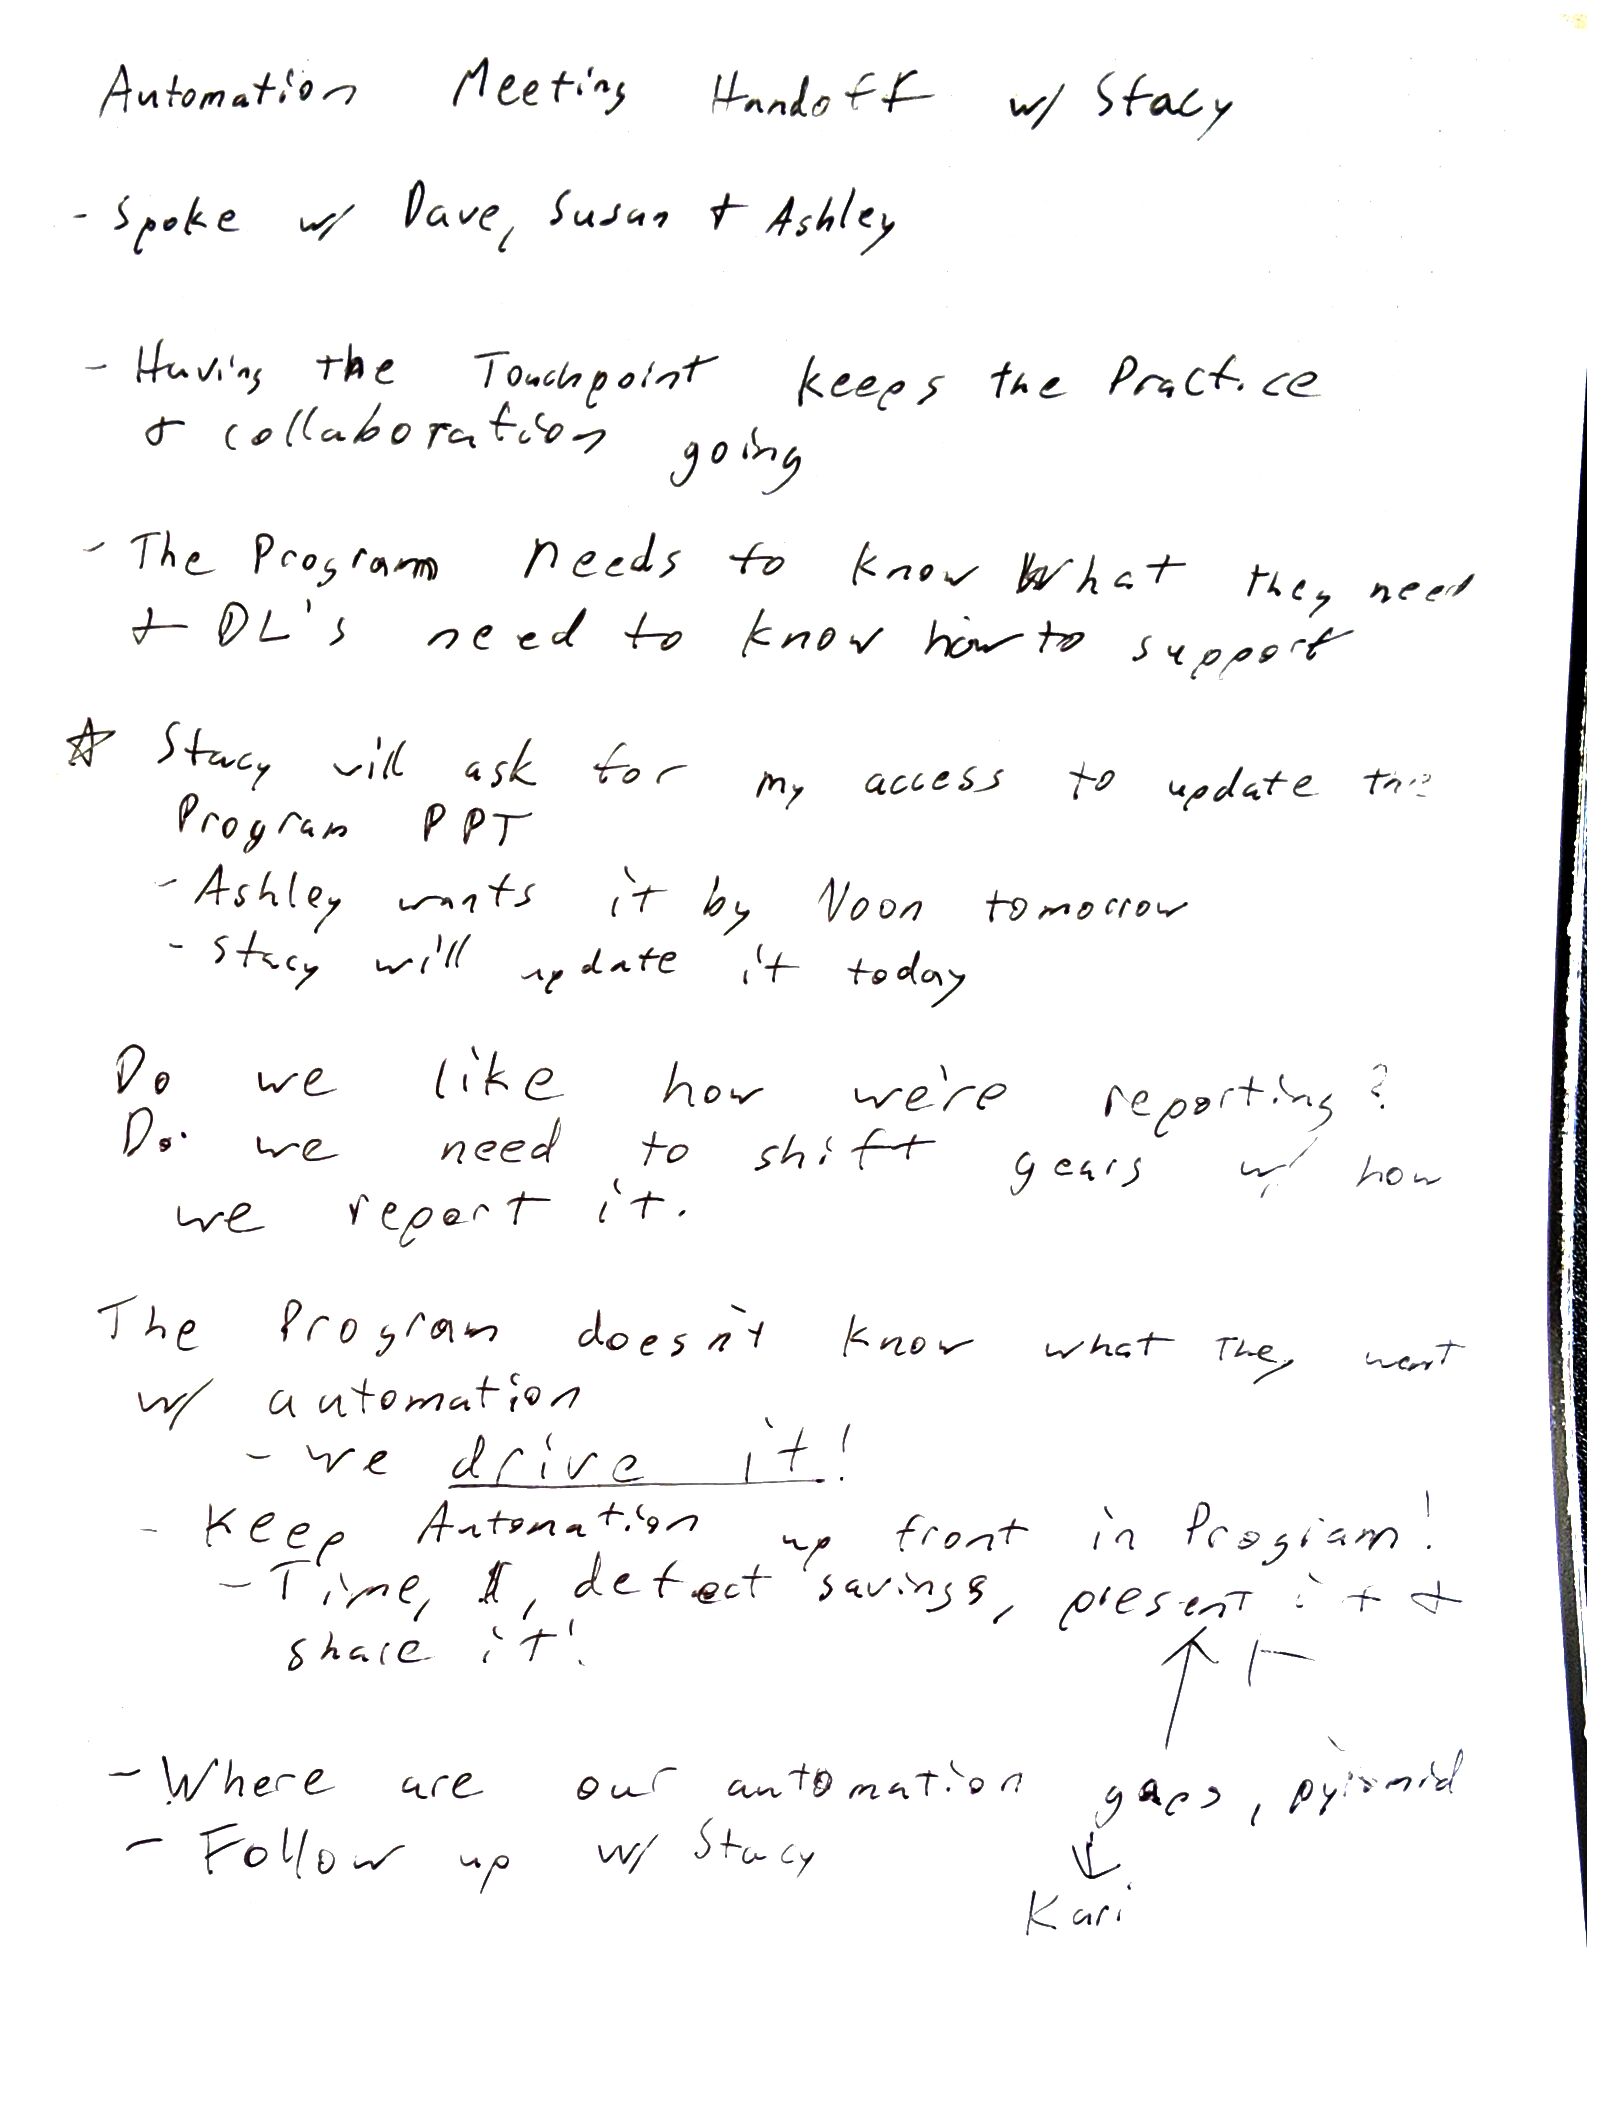 Automation Meeting Handoff w/ Stacy
- Spoke w/ Dave, Susan + Ashley
- Having the Touchpoint keeps the Practice
& collaboration going
- The Program needs to know What they need
+ DL's need to know how to support
☆ Stacy will ask for my access to update the
Program PPT
- Ashley wants it by Noon tomorrow
- Stacy will update it today
Do we like how we're reporting?
Do we need to shift gears w/ how
we report it.
The Program doesn't know what They want
w/ automation
- we drive it!
- Keep Automation up front in Program!
- Time, $, defect savings, present it &
share it!
- Where are our automation gaps, pyramid
- Follow up w/ Stacy
Kari